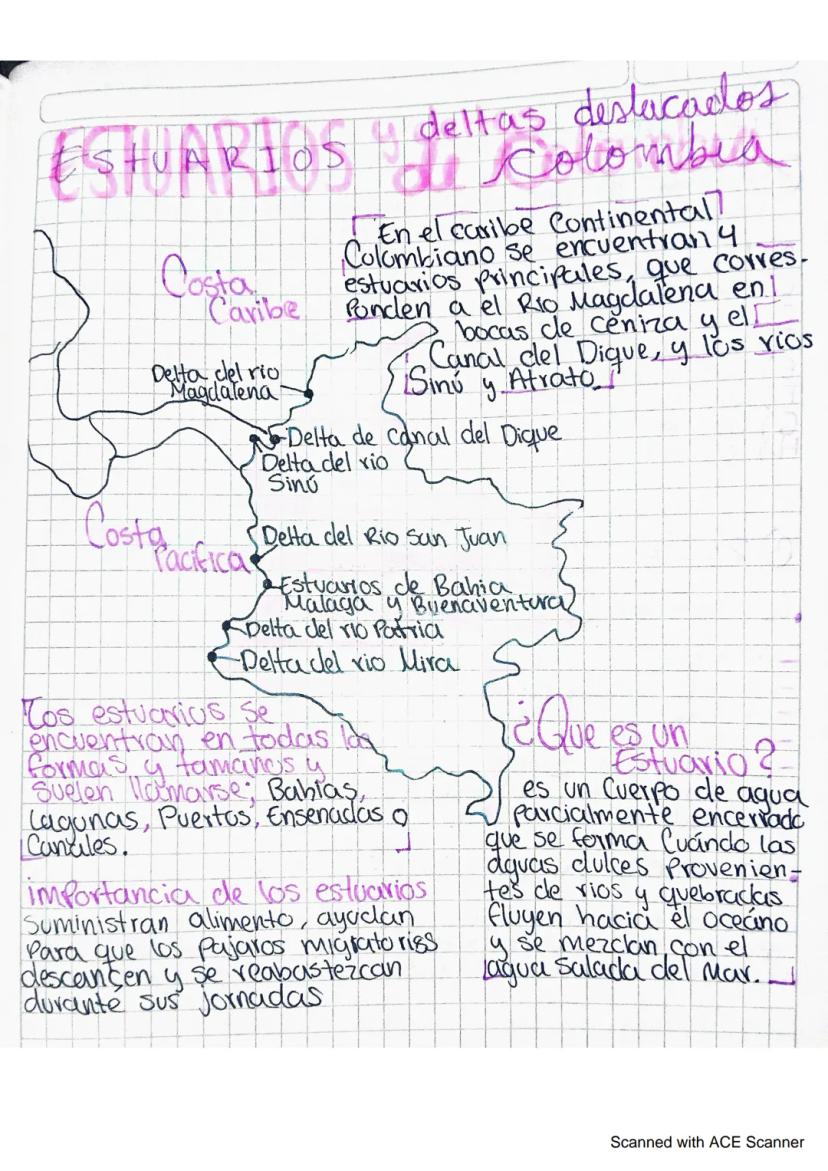 ESTUARIOS y deltas destacados
de Colombia
Costa
Caribe
En el caribe Continental
Colombiano se encuentran 4
estuarios principales, que corres-
Ponden a el Rio Magdalena en
bocas de ceniza y el
Canal del Dique, y los rios
Sinú y Atrato
Delta del rio
Magdalena
Delta de canal del Dique
Delta del rio
Sinú
Costa
Pacifica
Delta del Rio San Juan
Estuarios de Bahia
Malaga y Buenaventura
Delta del rio Patria
Delta del rio Mira
Los estuarios se
encuentran en todas las
formas y tamanos y
suelen llamarse; Bahías,
Lagunas, Puertos, Ensenadas o
Canales.
importancia de los estuarios
Suministran alimento, ayudan
Para que los pajaros migratorios
descancen y se reabastezcan
durante sus jornadas
¿Que es un
Estuario?
es un Cuerpo de agua
parcialmente encerrado
que se forma Cuándo las
aguas dulces Provenien-
tes de rios y quebradas
fluyen hacia el oceáno
y se mezclan con el
agua Salada del Mar.
Scanned with ACE Scanner